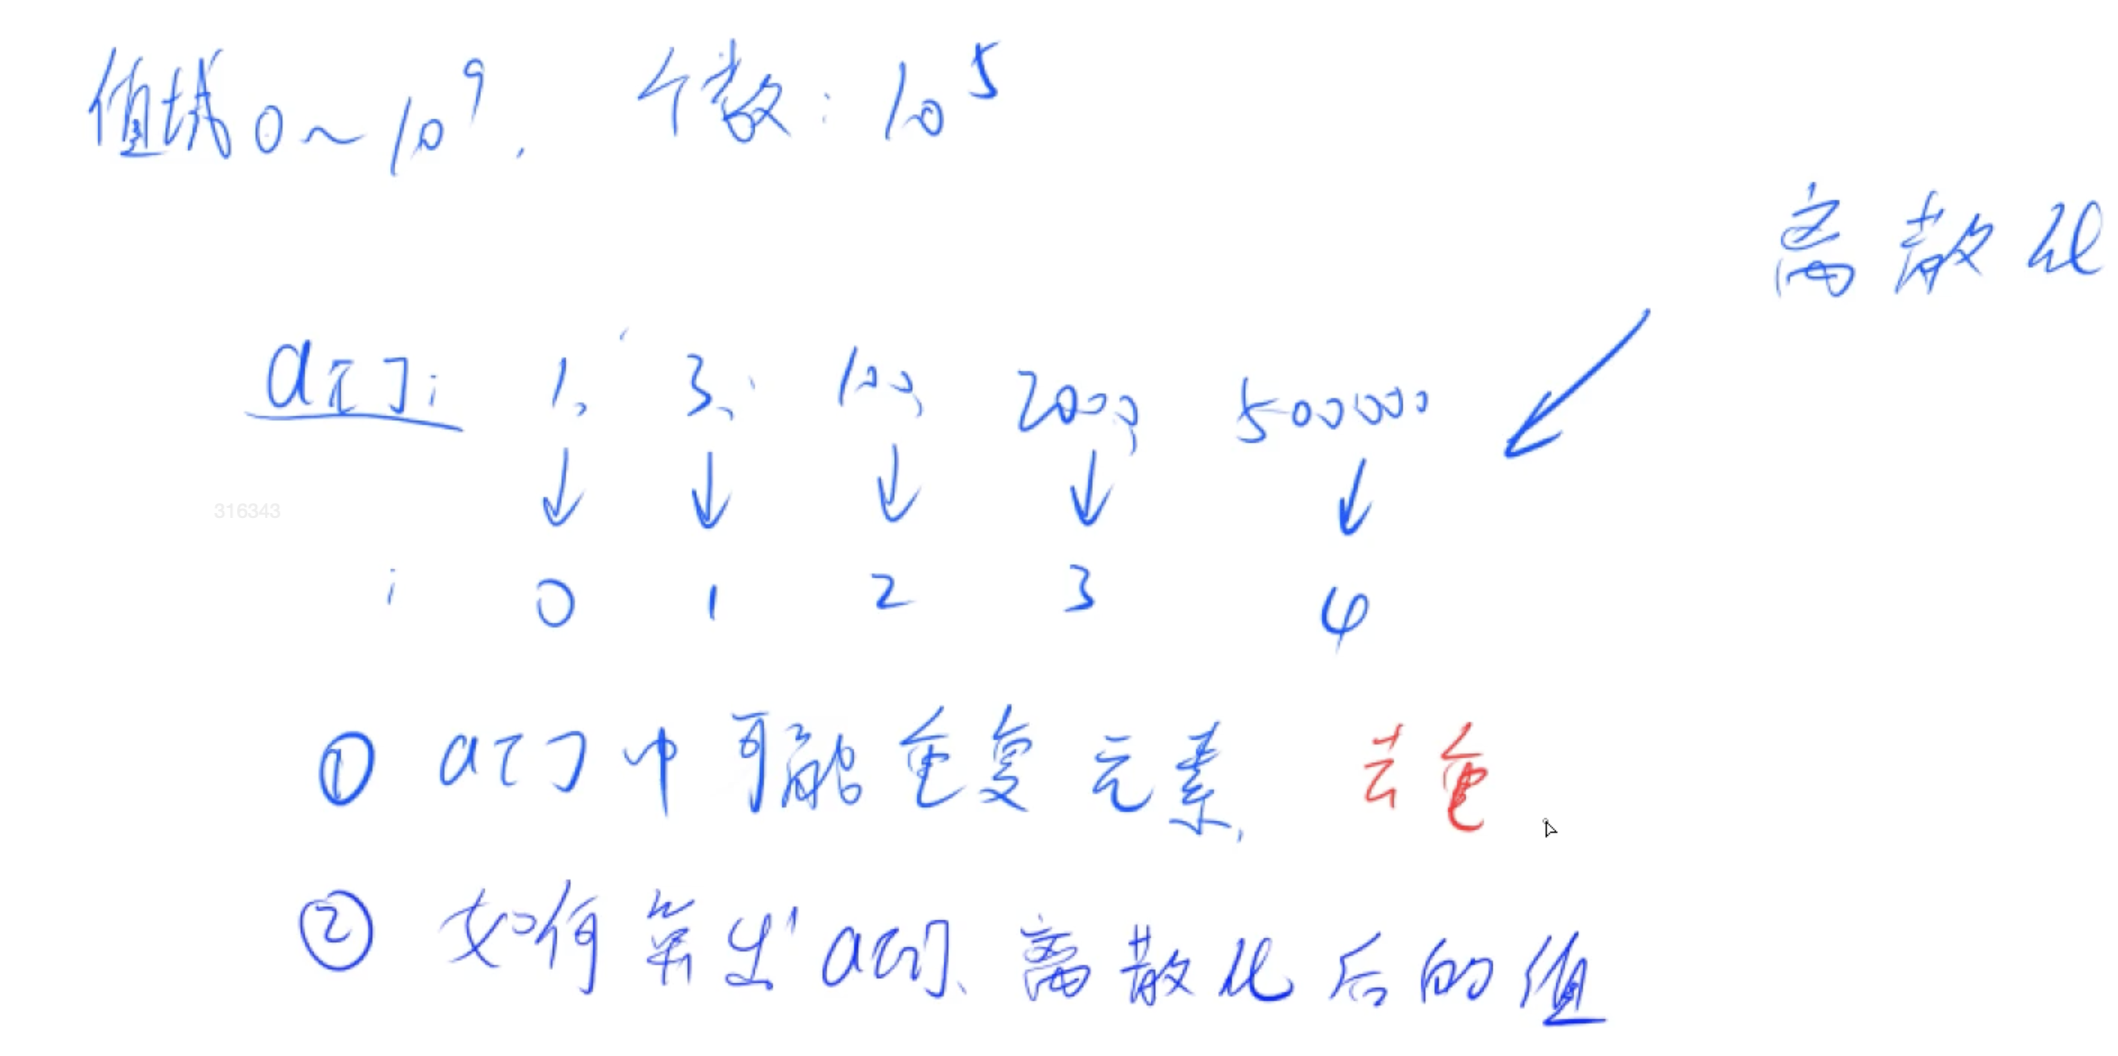 值域 0~10^9, 个数: 10^5
离散化
a[]: 1, 3, 100, 2000, 500000
316343
i 0 1 2 3 4
① a[]中可能重复元素, 去重
② 如何算出a[i]离散化后的值